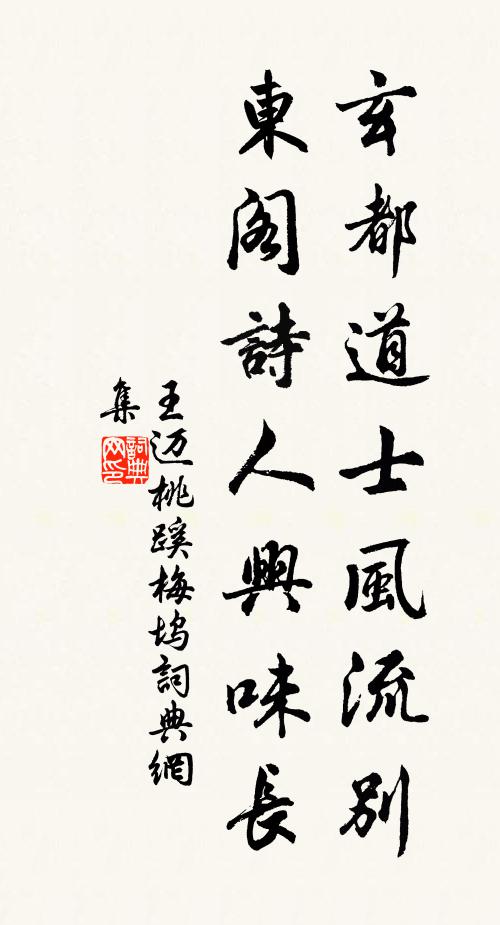 玄都道士風流別
東閣詩人興味長
王迈桃蹊梅坞詞典網
集
詞典網印